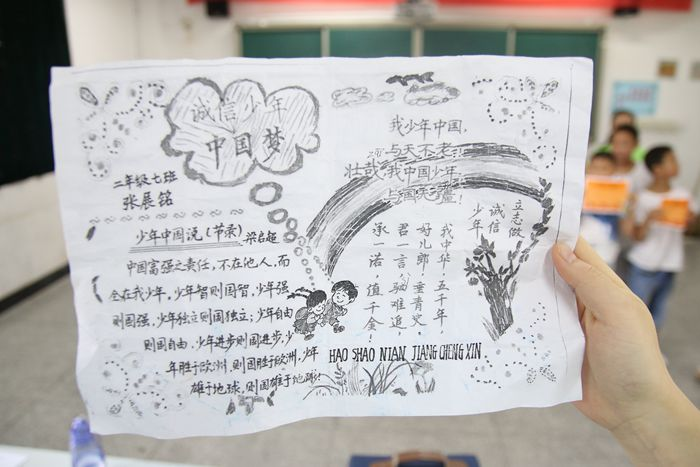 诚信少年
中国梦
二年级七班
张展铭
少年中国说(节录) 梁启超
中国富强之责任,不在他人,而
全在我少年,少年智则国智,少年强
则国强,少年独立则国独立;少年自由
则国自由,少年进步则国进步,少
年胜于欧洲,则国胜于欧洲,少年
雄于地球,则国雄于地球!
我少年中国,
与天不老,
壮哉,我中国少年
与国无疆!
立志做
诚信
少年
我中华!五千年,
好儿郎!垂青史,
君一言!驷难追,
承一诺 值千金!
HAO SHAO NIAN JIANG CHENG XIN